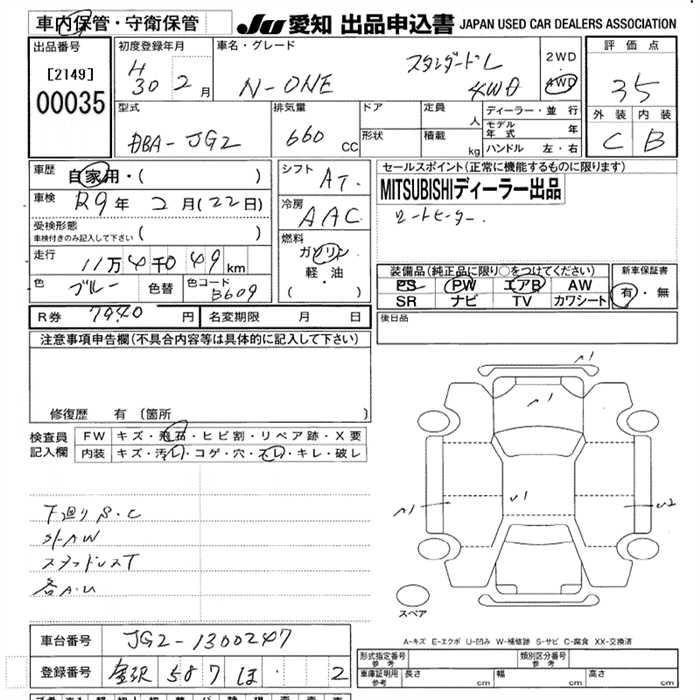 車内保管・守衛保管
JU 愛知 出品申込書 JAPAN USED CAR DEALERS ASSOCIATION
出品番号
[2149]
00035
初度登録年月
H30 2月
車名・グレード
N-ONE
スタンダードL
4WD
2WD
4WD
評価点
3.5
外装 内装
C B
型式
DBA-JG2
排気量
660 CC
ドア
形状
定員
人
積載
kg
ディーラー・並行
モデル年式 年
ハンドル 左・右
車歴
自家用・( )
車検
R9年 2月(22日)
受検形態
車検付きのみ記入して下さい ( )
走行
11万4千049km
色
ブルー
色替
色コード
B609
シフト
AT
冷房
AAC
燃料
ガソリン
軽・油
( ・ )
セールスポイント(正常に機能するものに限ります)
MITSUBISHIディーラー出品
シートヒーター
装備品(純正品に限り○をつけてください)
PS PW エアB AW
SR ナビ TV カワシート
新車保証書
有・無
R券 7940円
名変期限 月 日
後日品
注意事項申告欄(不具合内容等は具体的に記入して下さい)
修復歴 有 〔箇所 〕
検査員
記入欄
FW キズ・飛石・ヒビ割・リペア跡・X要
内装 キズ・汚レ・コゲ・穴・スレ・キレ・破レ
下廻りS.C
外AW
スタッドレスT
各A.U
A1
A1
A1
U1
U2
スペア
A-キズ E-エクボ U-凹み W-補修跡 S-サビ C-腐食 XX-交換済
車台番号
JG2-1300247
登録番号
金沢 587 ほ 2
形式指定番号
参考
類別区分番号
参考
車庫証明用
参考
長さ cm 幅 cm 高さ cm